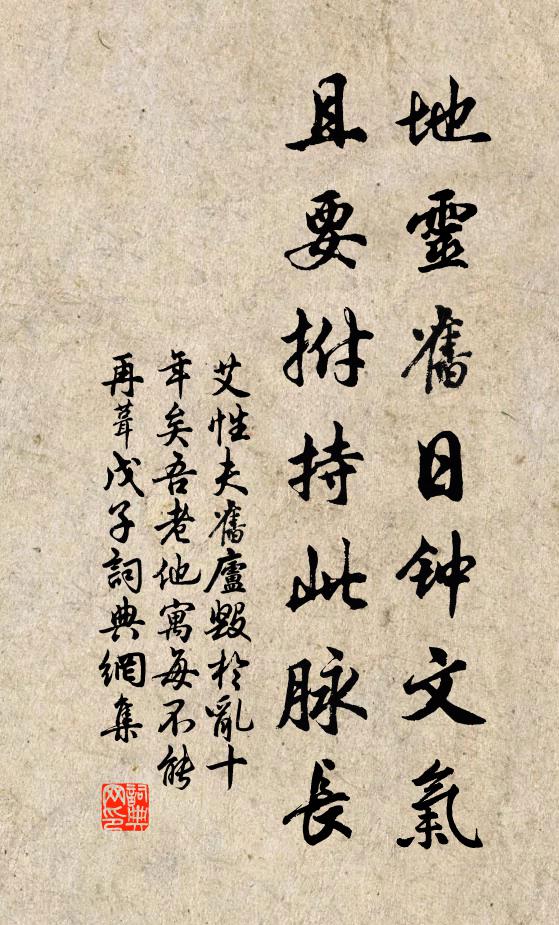 地靈舊日钟文氣
且要拊持此脉長
艾性夫舊廬毀於亂十
年矣吾老他寓每不能
再葺戊子詞典網集
詞典
网印